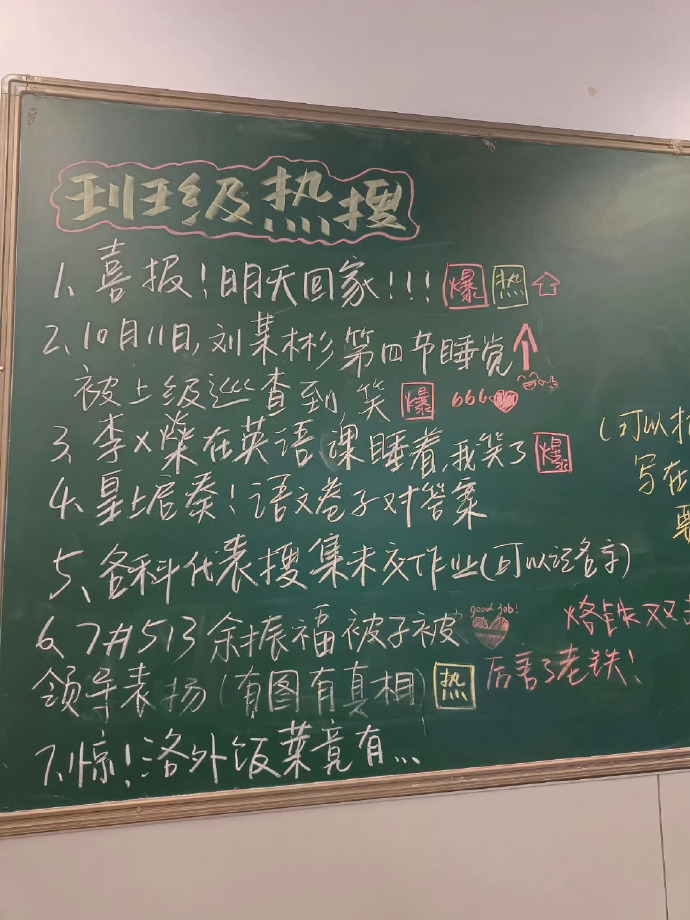 班级热搜
1、喜报！明天回家！！！ 爆 热
2、10月11日，刘某彬第四节睡觉
被上级巡查到 笑 爆 666
3、李X燊在英语课睡着，我笑了 爆
4、皇上启奏！语文卷子对答案
5、各科代表搜集未交作业（可以记名字）
6、7#513余振福被子被 good job!
领导表扬（有图有真相） 热 厉害了老铁！
7、惊！洛外饭菜竟有...
（可以
写在
要
烙铁双击